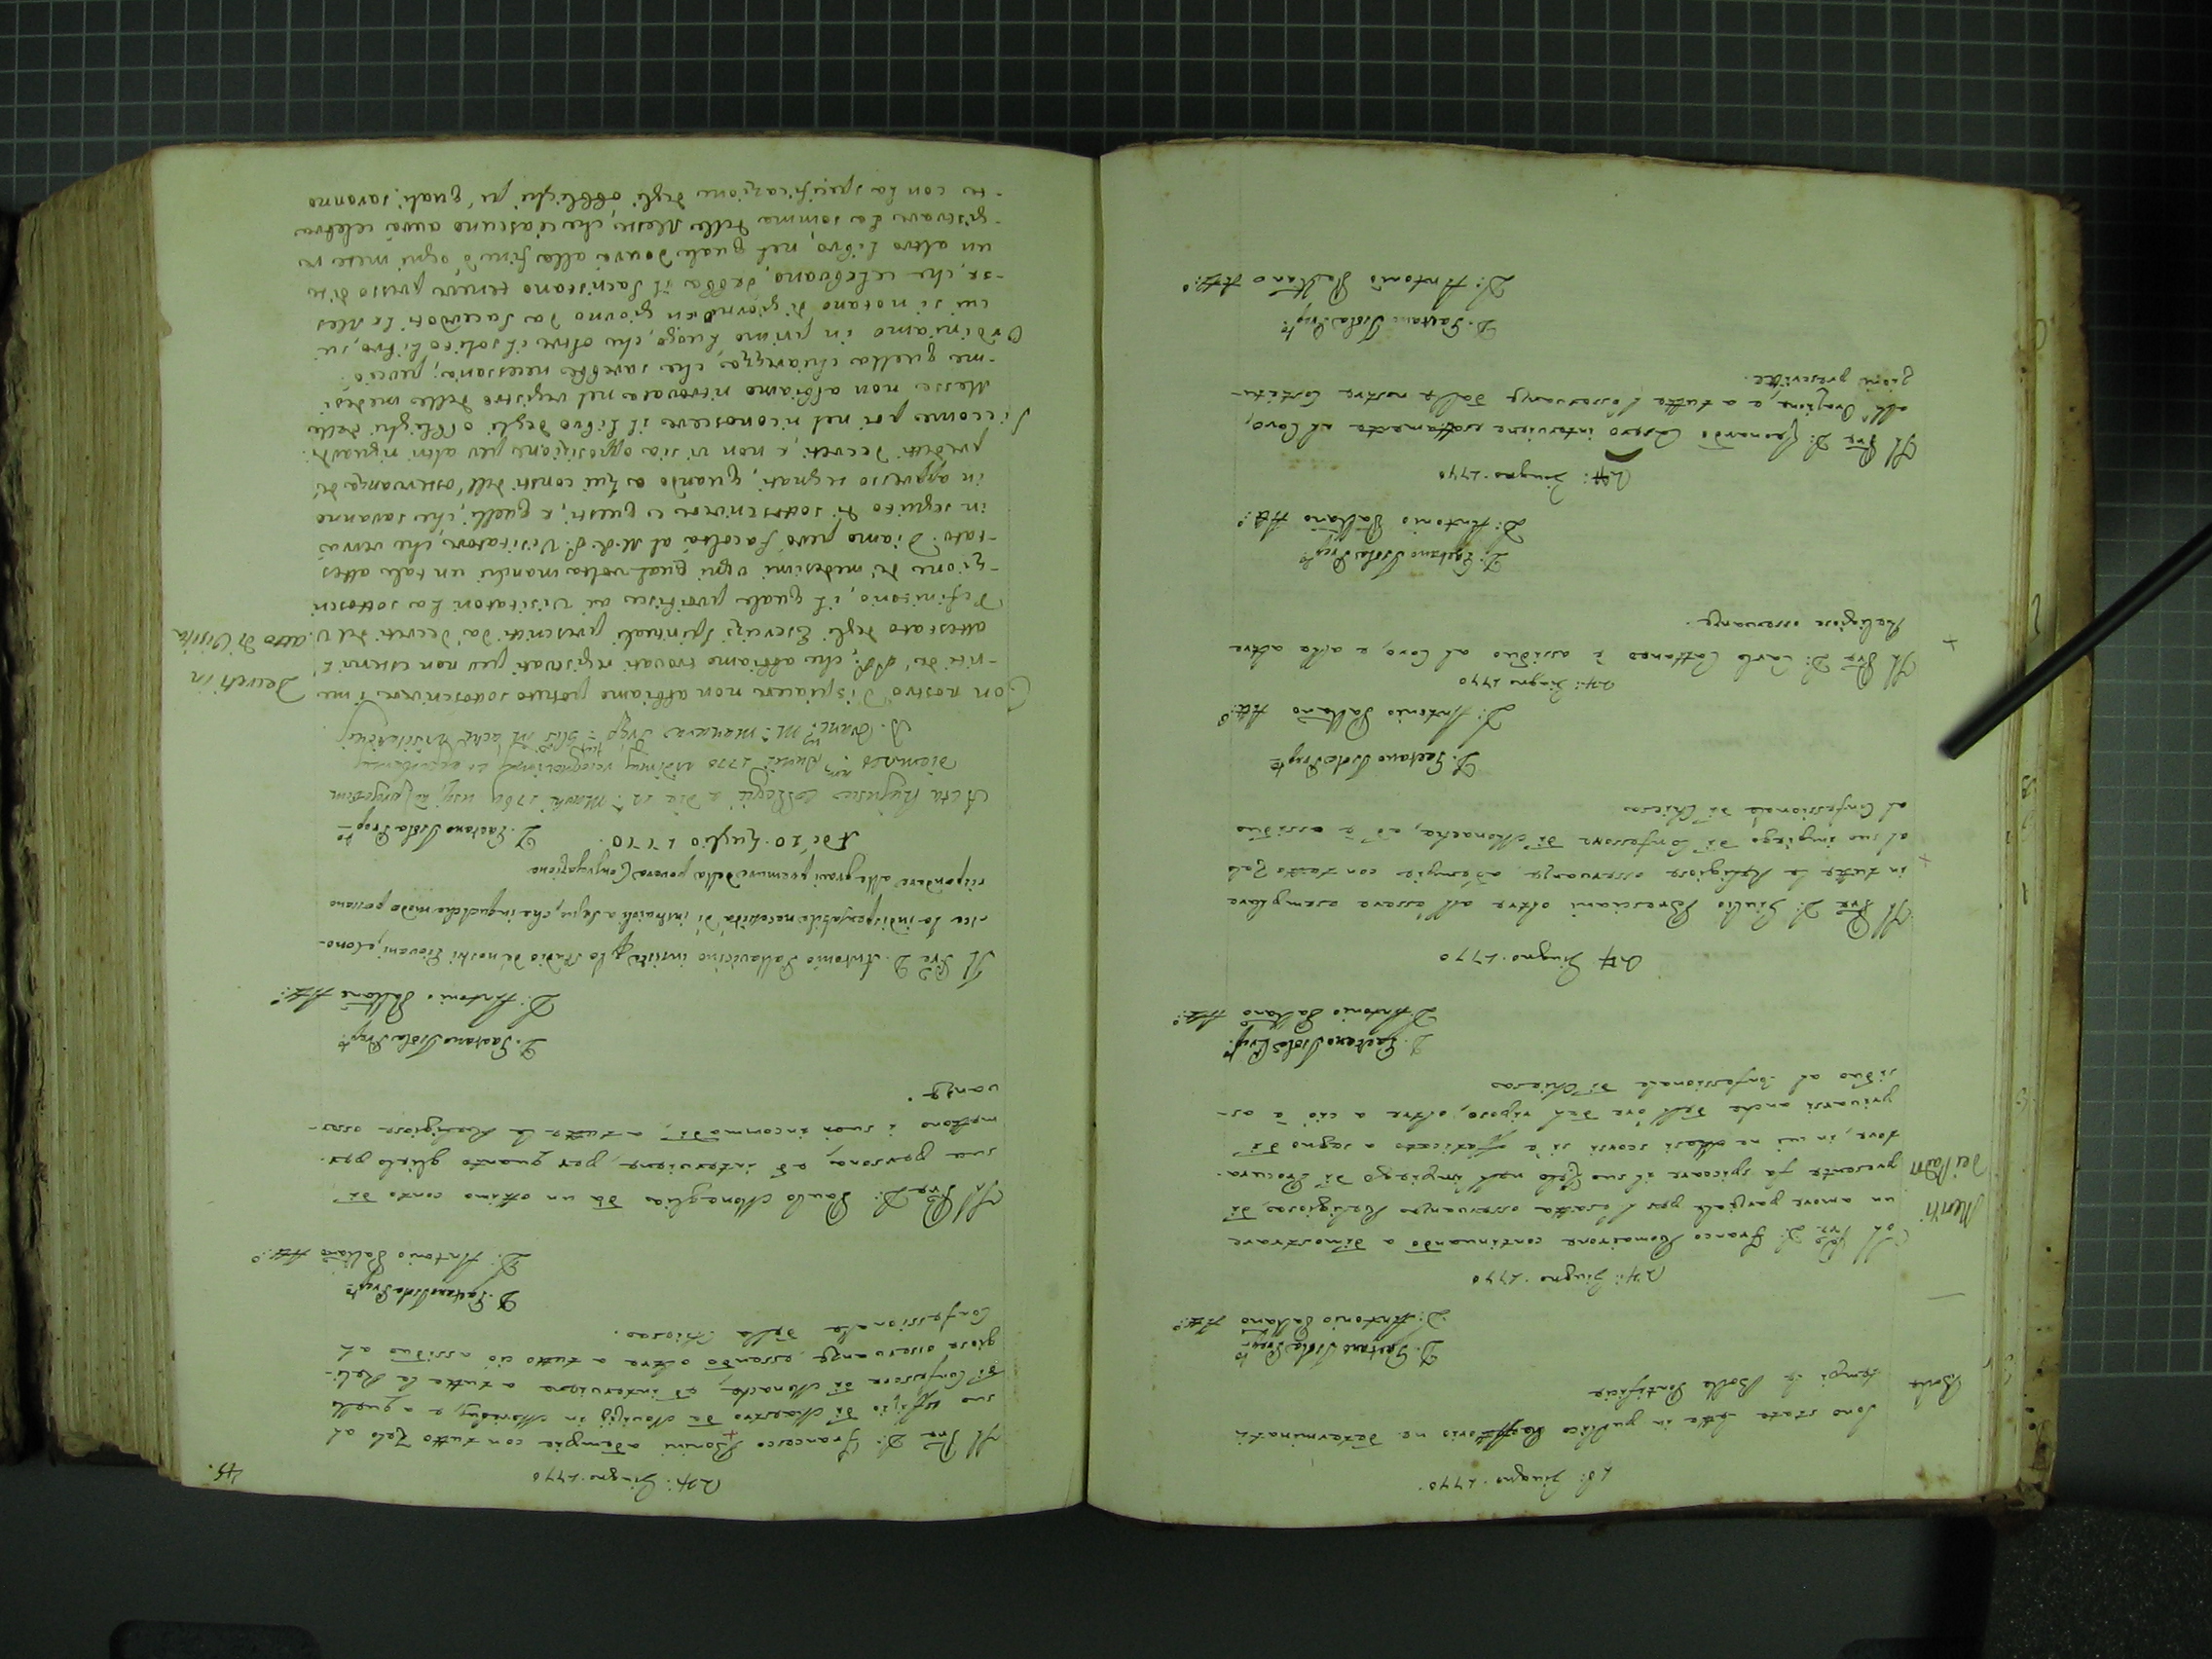 18: Giugno. 1770.
Bolle
Sono state lette in publico Reffettorio ne determinati
tempi le Bolle Pontificie
D. Gaetano Isola Prep.to
D: Antonio Pallano Att:o
24: Giugno. 1770
Meriti
dei Padri
Il Pre D: Franco Romairone continuando a dimostrare
un amore parziale per l'esatta osservanza Religiosa, di
presente fa spiccare il suo Zelo nell'impiego di Procura-
tore, in cui ne Mesi scorsi si è affaticato a segno di
privarsi anche dell'ore del riposo, oltre a ciò è as-
siduo al Confessionale di Chiesa
D. Gaetano Isola Prep.to
D: Antonio Pallano Att:o
24 Giugno. 1770
Il Pre D: Giulio Bresciani oltre all'essere esemplare
in tutte le Religiose osservanze, adempie con tutto Zelo
al suo impiego di Confessore di Monache, ed è assiduo
al Confessionale di Chiesa
D. Gaetano Isola Prep.to
D: Antonio Pallano Att:o
24: Giugno 1770
Il Pre D: Carlo Cattaneo è assiduo al Coro, e alla altre
Religiose osservanze.
D: Gaetano Isola Prep.to
D: Antonio Pallano Att:o
24: Giugno. 1770
Il Pre D: Leonardo interviene esattamente al Coro,
all'Orazione, e a tutte l'osservanze dalle nostre Costitu-
zioni prescritte.
D. Gaetano Isola Prep.to
D: Antonio Pallano Att:o
45.
24: Giugno. 1770
Il Pre D: Francesco Bonini adempie con tutto Zelo al
suo Uffizio di Maestro de Novizzi in, e a quello
di Confessore di Monache, ed interviene a tutte le Reli-
giose osservanze, essendo oltre a tutto ciò assiduo al
Confessionale della Chiesa.
D. Gaetano Isola Prep.to
D: Antonio Pallano Att:o
Il Pre D: Paolo Moneglia dà un ottimo conto di
sua persona, ed interviene, per quanto glielo per-
mettono i suoi incommodi, a tutte le Religiose osser-
vanze.
D. Gaetano Isola Prep.to
D: Antonio Pallano Att:o
Il Pre D. Antonio Pallavicino insiste lo studio de' nostri Giovani, e cono-
sce la indispensabile necessità di istruirli a segno, che in qualche modo possano
rispondere alle gravi premure della povera Congregazione
A dì 10. Luglio 1770. D. Gaetano Isola Prep.to
Acta hujusce Collegii a die 12 Martii 1769 usq; ad
diem Junii 1770 vidimus recognovimus et approbavimus
D. Franc.us M.a Manara Prep.
Decreti in
atto di Visita
Con nostro dispiacere non abbiamo potuto sottoscrivere i me-
riti de' PP., che abbiamo trovati registrati per non esservi l'
attestato degli Esercizi Spirituali prescritti da' decreti del V.
Definitorio, il quale proibisce ai Visitatori la sottoscri-
zione de' medesimi ogni qual volta manchi un tale attes
-tato. Diamo però facoltà al M. R. P. Visitatore, che verrà
in seguito di sottoscrivere e questi, e quelli, che saranno
in appresso segnati, quando a lui consti dell'osservanza de'
predetti decreti, e non vi sia opposizione per altri riguardi.
Siccome poi nel riconoscere il Libro degli obblighi delle
Messe non abbiamo ritrovata nel registro delle medesi
-me quella chiarezza, che sarebbe necessaria; perciò
Ordiniamo in primo luogo, che oltre il solito Libro, in
cui si notano giorno per giorno da Sacerdoti le Mes
-se, che celebrano, debba il Sacristano tenere presso di se
un altro Libro, nel quale dovrà alla fine d'ogni mese re
-gistrare la somma delle Messe, che ciascuno avrà celebra
-te con la specificazione degli obblighi, pe' quali saranno